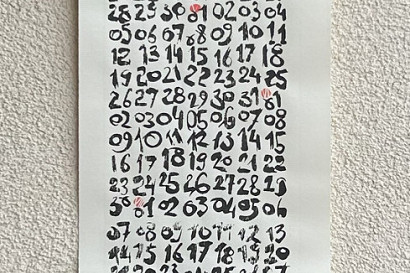 28 29 30 01 02 03 04
05 06 07 08 09 10 11
12 13 14 15 16 17 18
19 20 21 22 23 24 25
26 27 28 29 30 31 01
02 03 04 05 06 07 08
09 10 11 12 13 14 15
16 17 18 19 20 21 22
23 24 25 26 27 28 29
30 01 02 03 04 05 06
07 08 09 10 11 12 13
14 15 16 17 18 19 20